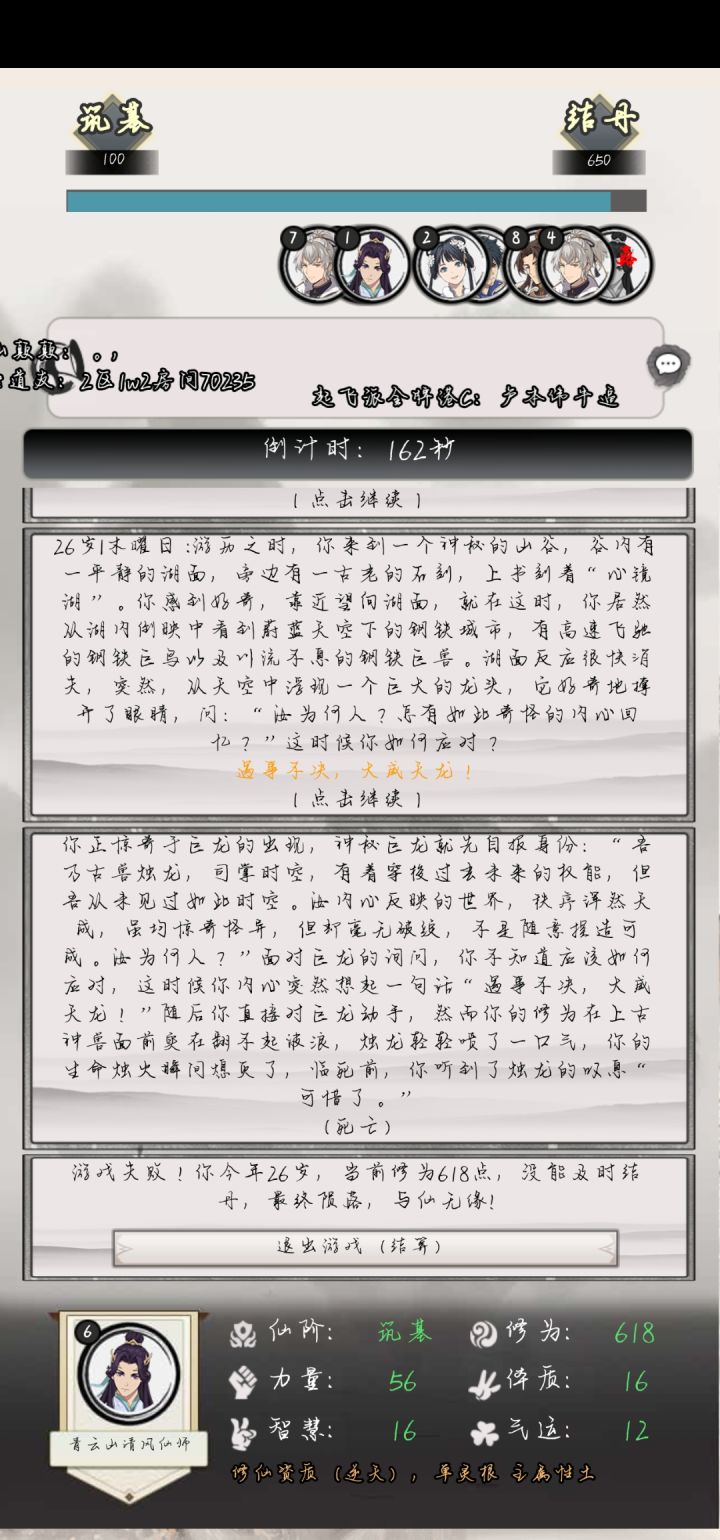 筑基
结丹
100
650
7
1
2
8
4
道友：2区1w2房间70235
倒计时：162秒
(点击继续)
26岁1木曜日:游历之时，你来到一个神秘的山谷，谷内有
一平静的湖面，旁边有一古老的石刻，上书刻着“心镜
湖”。你感到好奇，靠近望向湖面，就在这时，你居然
从湖内倒映中看到蔚蓝天空下的钢铁城市，有高速飞驰
的钢铁巨鸟以及川流不息的钢铁巨兽。湖面反应很快消
失，突然，从天空中浮现一个巨大的龙头，它好奇地睁
开了眼睛，问：“汝为何人？怎有如此奇怪的内心回
忆？”这时候你如何应对？
遇事不决，大威天龙！
(点击继续)
你正惊奇于巨龙的出现，神秘巨龙就先自报身份：“吾
乃古兽烛龙，司掌时空，有着穿梭过去未来的权能，但
吾从未见过如此时空。汝内心反映的世界，秩序浑然天
成，虽均惊奇怪异，但却毫无破绽，不是随意捏造可
成。汝为何人？”面对巨龙的询问，你不知道应该如何
应对，这时候你内心突然想起一句话“遇事不决，大威
天龙！”随后你直接对巨龙动手，然而你的修为在上古
神兽面前实在翻不起波浪，烛龙轻轻喷了一口气，你的
生命烛火瞬间熄灭了，临死前，你听到了烛龙的叹息“
可惜了。”
(死亡)
游戏失败！你今年26岁，当前修为618点，没能及时结
丹，最终陨落，与仙无缘！
退出游戏（结算）
6
青云山清风仙师
仙阶：筑基 修为：618
力量：56 体质：16
智慧：16 气运：12
修仙资质（逆天），单灵根 主属性土